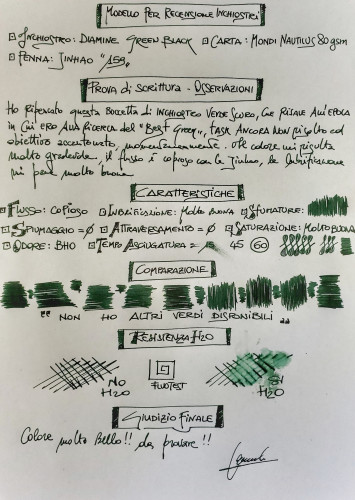 MODELLO PER RECENSIONE INCHIOSTRI
INCHIOSTRO: DIAMINE GREEN BLACK CARTA: MONDI NAUTILUS 80gsm
PENNA: JINHAO "159"
PROVA di SCRITTURA - OSSERVAZIONI
Ho Ripescato questa Boccetta di INCHIOSTRO VERDE SCURO, che RISALE ALL'EPOCA
in Cui ERO ALLA RICERCA del "BEST GREEN", TASK ANCORA NON RISOLTO ed
obiettivo accantonato, momentaneamente. Il colore mi risulta
molto gradevole, il flusso è copioso con la Jinhao, la lubrificazione
mi pare molto buona
CARATTERISTICHE
FLUSSO: COPIOSO LUBRIFICAZIONE: MOLTO BUONA SFUMATURE:
SPIUMAGGIO = 0 ATTRAVERSAMENTO = 0 SATURAZIONE: MOLTO BUONA
ODORE: BHO TEMPO ASCIUGATURA = 15 45 60
COMPARAZIONE
"" NON HO ALTRI VERDI DISPONIBILI ""
RESISTENZA H2O
NO
H2O
FLUOTEST
SI
H2O
GIUDIZIO FINALE
Colore molto Bello!! da provare!!